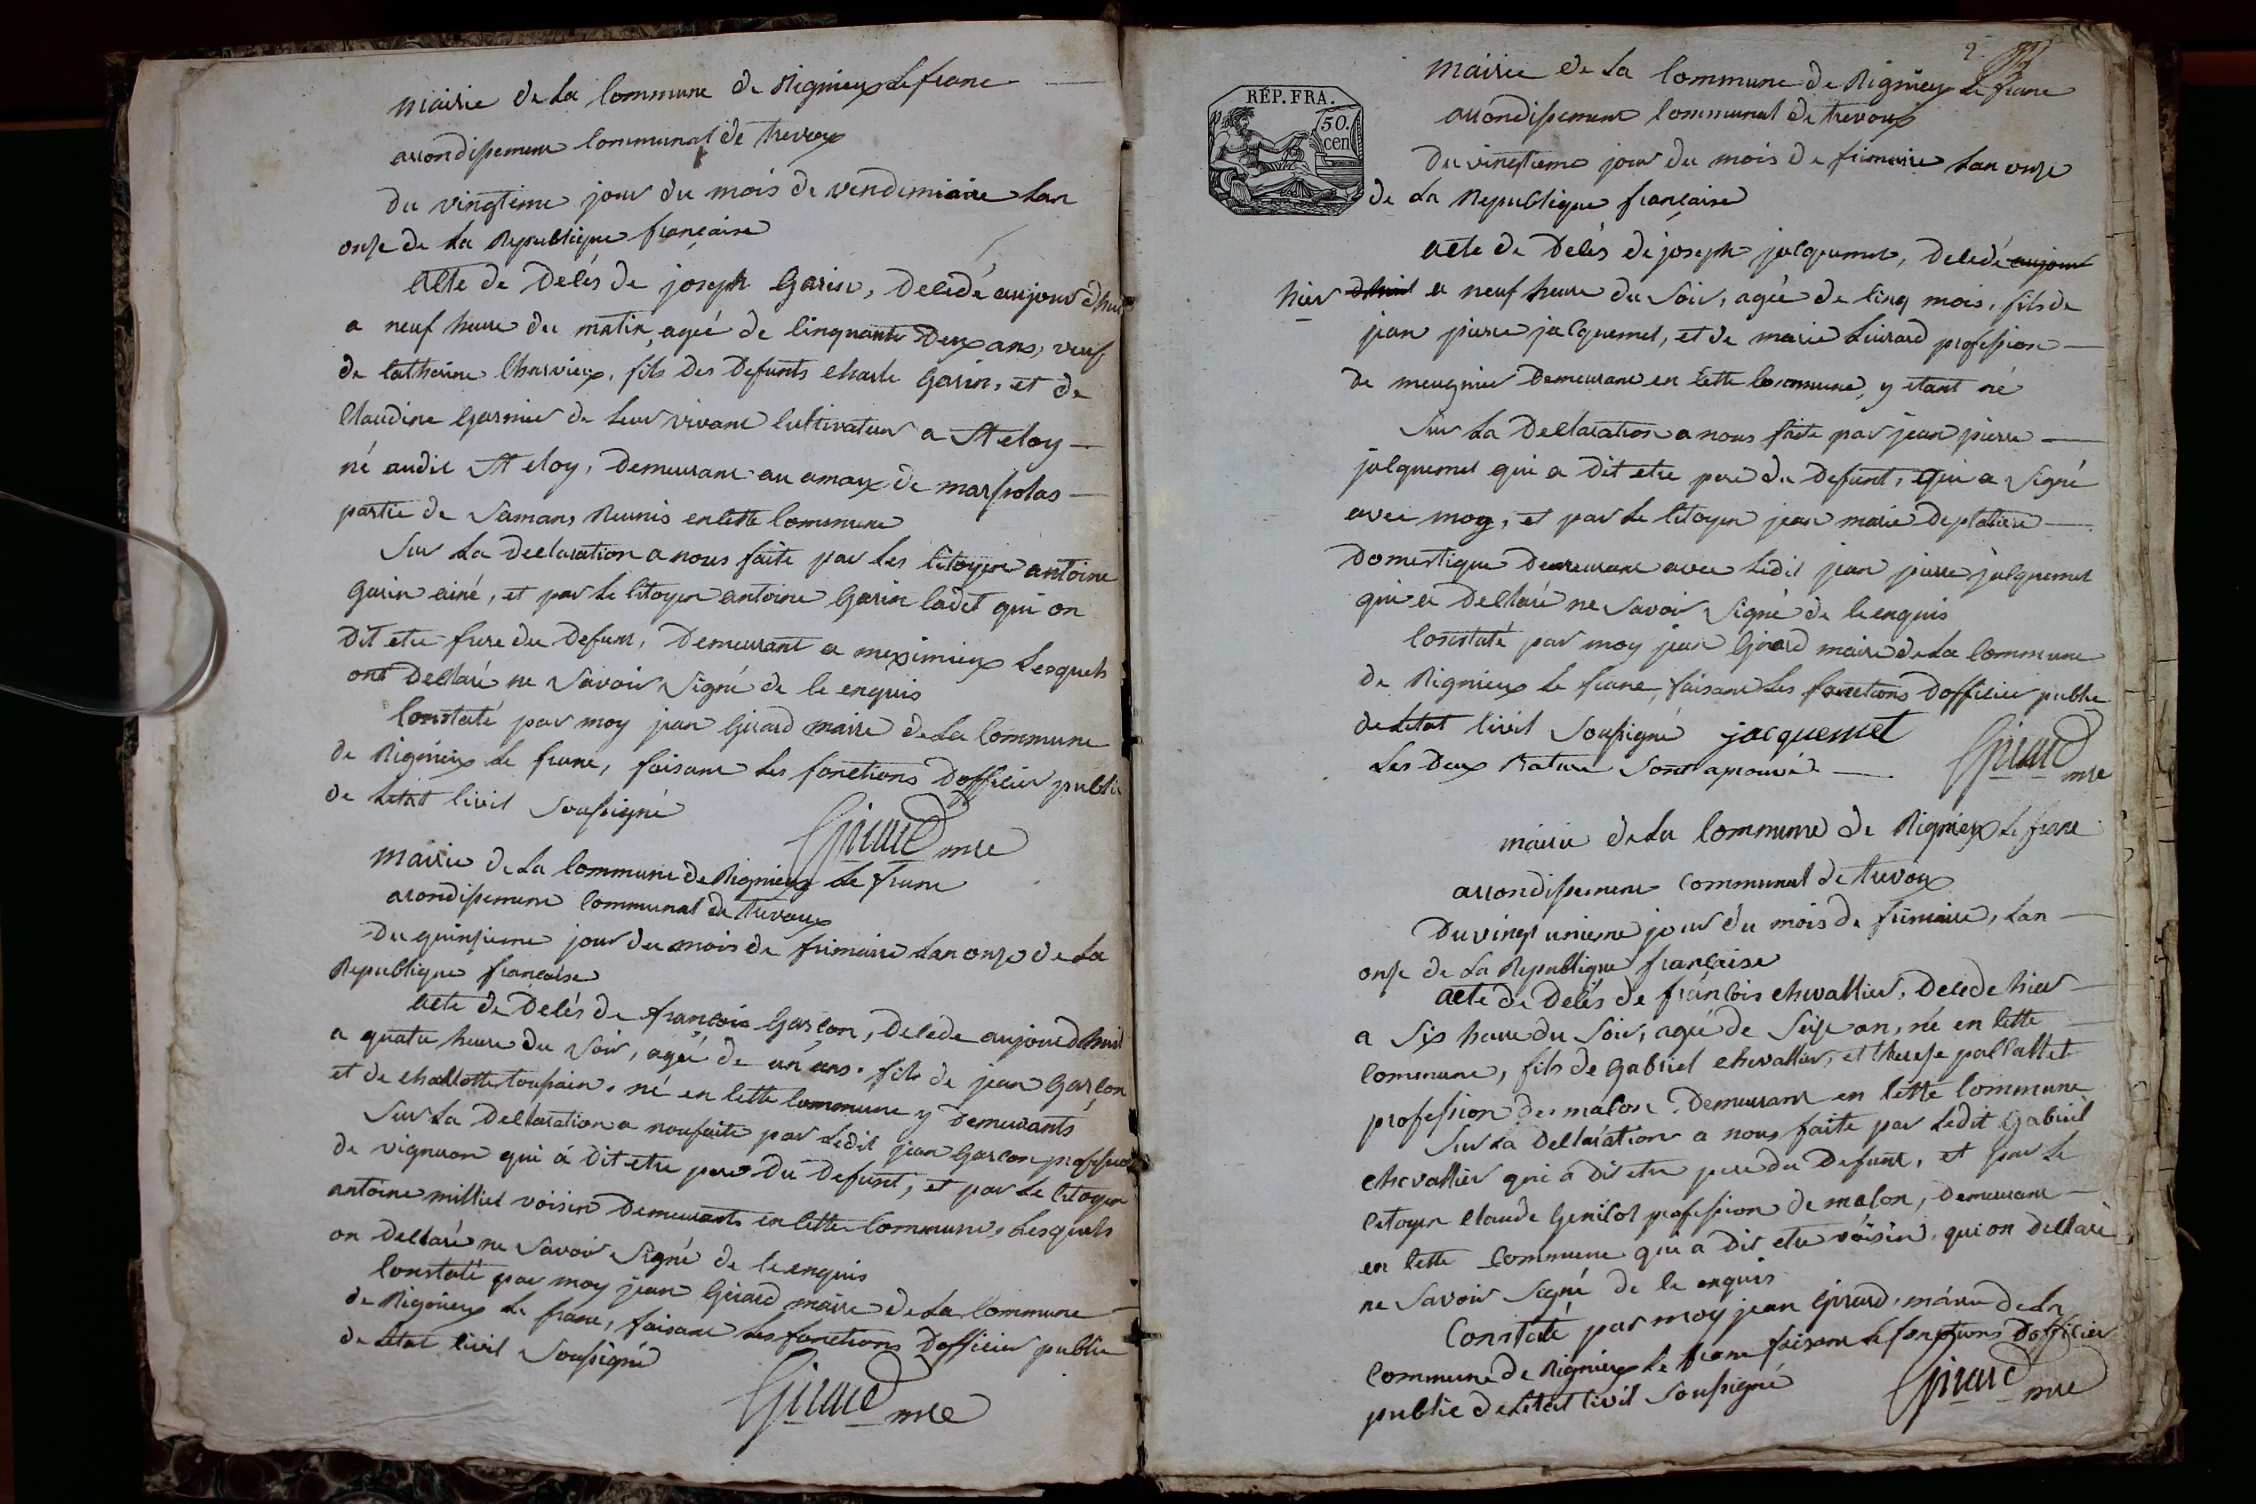 mairie de la Commune de Rignieux le franc
arrondissement Communal de trevoux
du vingtieme jour du mois de vendemiaire lan
onze de la Republique francaise
acte de deces de joseph Garin, decedé aujourd'hui
a neuf heure du matin, ageé de cinquante deux ans, veuf
de Catherine Charvieux, fils des defunts charle Garin, et de
Claudine Garnier de leur vivant Cultivateur a St eloy
né audit St eloy, demeurant au amaux de marfolas
partie de Samans Reunis en cette Commune
Sur la declaration a nous faite par les Citoyen antoine
Garin ainé, et par le Citoyen antoine Garin Cadet qui on
dit etre frere du defunt, demeurant a meximieux lesquels
ont declaré ne savoir signé de ce enquis
Constaté par moy jean Girard maire de la Commune
de Rignieux le franc, faisant les fonctions dofficier public
de letat Civil soussigné
Girard mre
mairie de la Commune de Rignieux le franc
arondissement Communal de trevoux
du quinzieme jour du mois de frimaire lan onze de la
Republique francaise
acte de deces de francois Garcon, decede aujourdhuit
a quatre heure du soir, ageé de un ans. fils de jean Garcon
et de challotte toupain. né en cette commune y demeurants
Sur la declaration a nousfaite par ledit jean Garcon profession
de vigneron qui á dit etre pere du defunt, et par le Citoyen
antoine milliet voisin demeurants en cette Commune, lesquels
on declaré ne savoir signé de ce enquis
Constaté par moy jean Girard maire de la Commune
de Rignieux le franc, faisant les fonctions dofficier public
de letat Civil soussigné
Girard mre
2
RÉP. FRA.
50.
cen
mairie de la Commune de Rignieux le franc
arrondissement Communal de trevoux
du vingtieme jour du mois de frimaire lan onze
de la Republique francaise
acte de deces de joseph jacquemet, decedé aujour
hier dhui a neuf heure du soir, ageé de cinq mois, fils de
jean pierre jacquemet, et de marie Liurard profession
de meugnier demeurant en cette Commune, y etant né
Sur la declaration a nous faite par jean pierre
jacquemet qui a dit etre pere du defunt, qui a signé
avec moy, et par le Citoyen jean marie deplatiere
domestique demeurant avec ledit jean pierre jacquemet
qui a declaré ne savoir signé de ce enquis
Constaté par moy jean Girard maire de la Commune
de Rignieux le franc, faisant les fonctions dofficier public
de letat Civil soussigné jacquemet
les deux Rature sont aprouvé Girard mre
mairie de la Commune de Rignieux le franc
arrondissement Communal de trevoux
du vingt unieme jour du mois de frimaire, lan
onze de la Republique francaise
acte de deces de francois chevallier, decede hier
a six heure du soir, ageé de seize an, né en cette
Commune, fils de Gabriel chevallier, et therese pallattet
profession de malon demeurant en cette Commune
Sur la declaration a nous faite par ledit Gabriel
chevallier qui á dit etre pere du defunt, et par le
Citoyen Claude Genicot profession de malon, demeurant
en cette Commune qui a dit etre voisin, qui on declaré
ne savoir signé de ce enquis
Constaté par moy jean Girard, maire de la
Commune de Rignieux le franc faisant le fonctions dofficier
public de letat Civil soussigné Girard mre